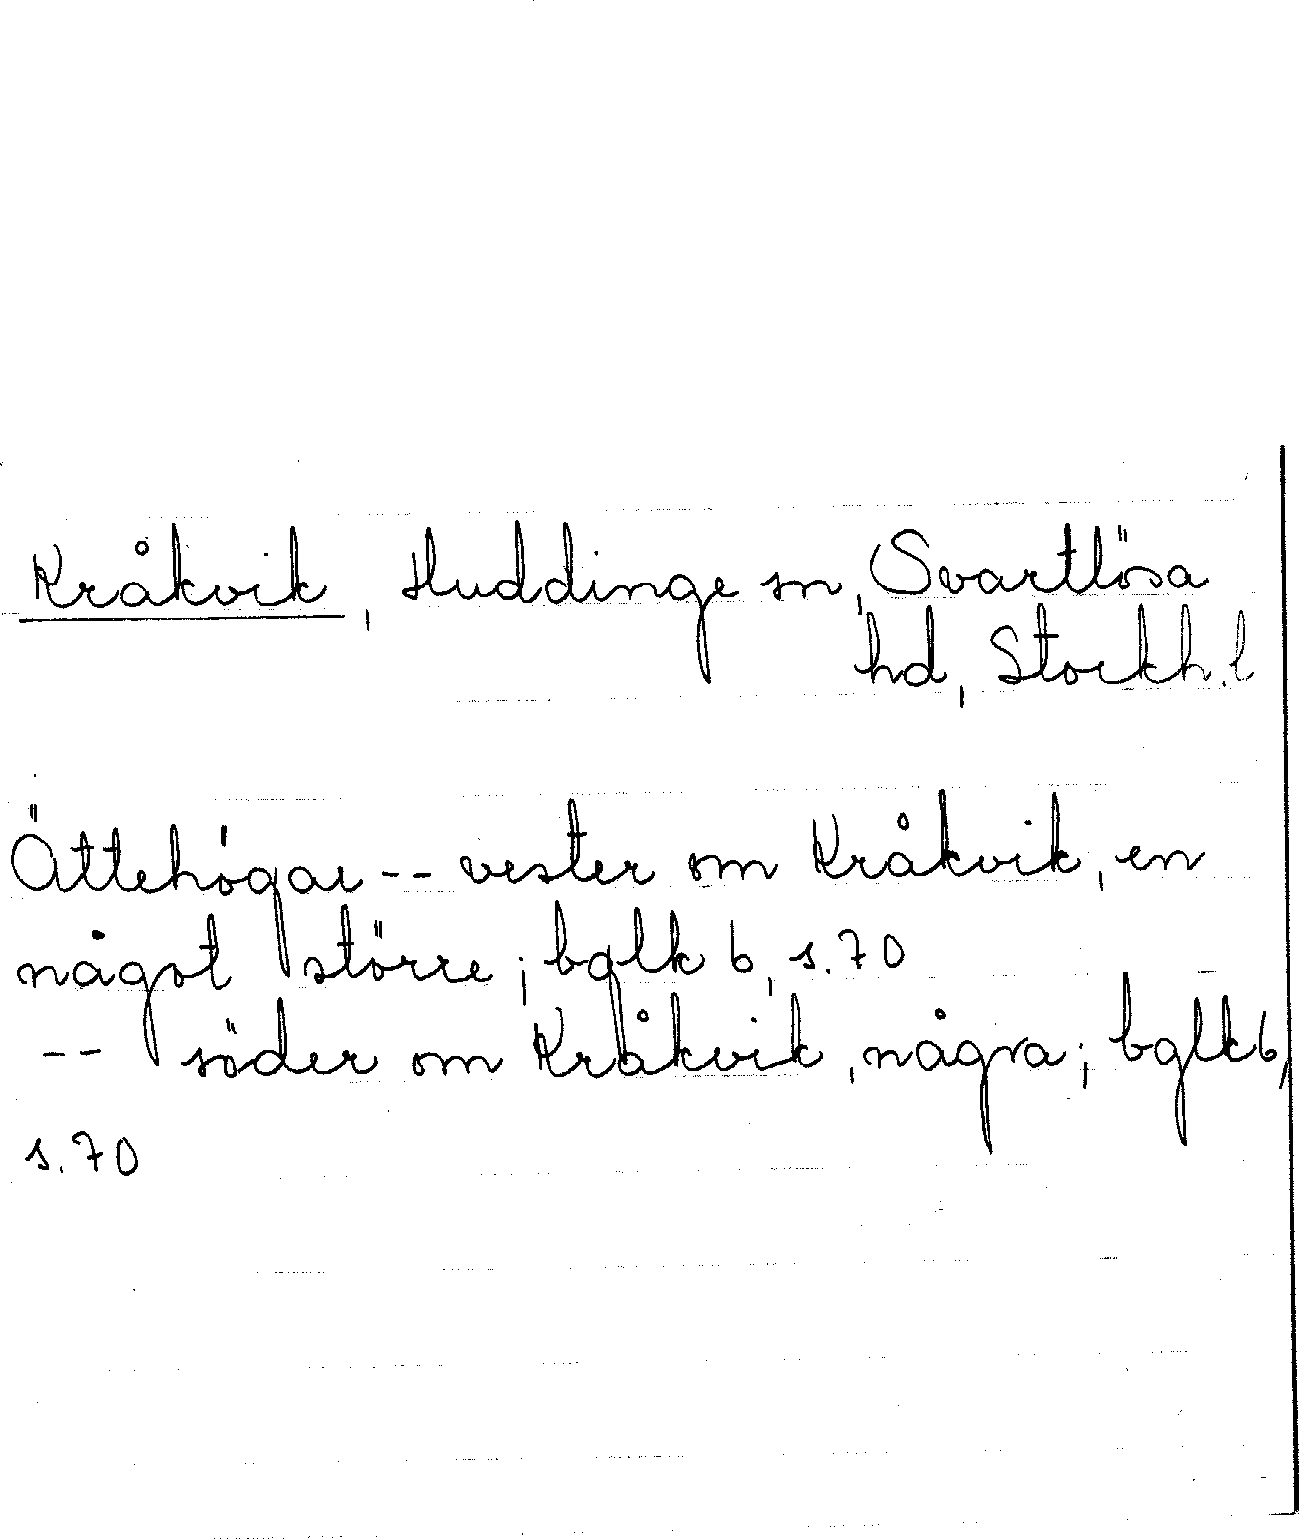 Kråkvik, Huddinge sn, Svartlösa
hd, Stockh.l
Ättehögar -- vester om Kråkvik, en
något större; bglk 6, s.70
-- söder om Kråkvik, några; bglk 6,
s.70